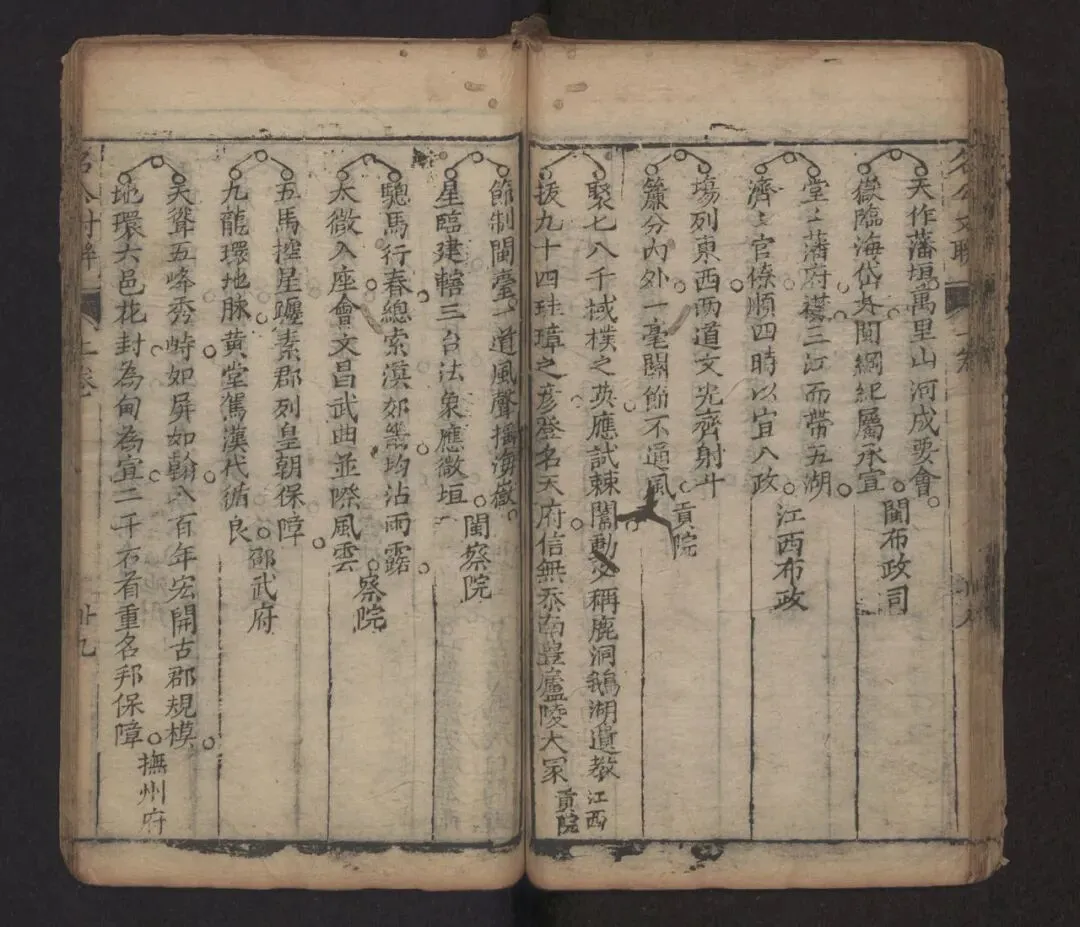 名公文聯
一卷
天作藩垣萬里山河成要會
嶽臨海岱七閩綱紀屬承宣
閩布政司
堂〻藩府襟三江而帶五湖
濟〻官僚順四時以宜八政
江西布政
場列東西兩道文光齊射斗
簾分內外一毫關節不通風
貢院
聚七八千棫樸之英應試棘闈動必稱鹿洞鵝湖遺教
拔九十四珪璋之彥登名天府信無忝南豊廬陵大冡
江西
貢院
節制閩臺一道風聲搖海嶽
星臨建轄三台法象應微垣
閩察院
驄馬行春總索濱郊畿均沾雨露
太微入座會文昌武曲並際風雲
察院
五馬控星躔素郡列皇朝保障
九龍環地脉黃堂駕漢代循良
邵武府
天聳五峰秀峙如屏如翰八百年宏開古郡規模
地環六邑花封為甸為宣二千石着重名邦保障
撫州府
名公對聯
上卷
卄九